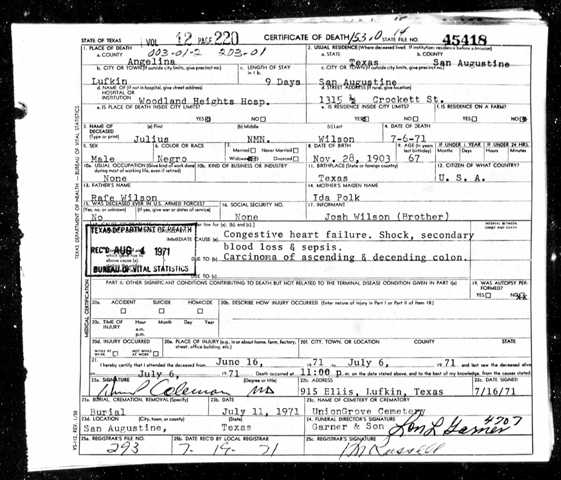 STATE OF TEXAS VOL 42 PAGE 220 CERTIFICATE OF DEATH STATE FILE NO. 45418
1. PLACE OF DEATH 003-01-2 203-01 2. USUAL RESIDENCE (Where deceased lived. If institution: residence before admission)
a. COUNTY Angelina a. STATE Texas b. COUNTY San Augustine
b. CITY OR TOWN (If outside city limits, give precinct no.) c. LENGTH OF STAY in 1 b. c. CITY OR TOWN (If outside city limits, give precinct no.)
Lufkin 9 Days San Augustine
d. NAME OF (If not in hospital, give street address) HOSPITAL OR INSTITUTION d. STREET ADDRESS (If rural, give location)
Woodland Heights Hosp. 1315 ½ Crockett St.
e. IS PLACE OF DEATH INSIDE CITY LIMITS? e. IS RESIDENCE INSIDE CITY LIMITS? f. IS RESIDENCE ON A FARM?
YES NO YES NO YES NO
3. NAME OF DECEASED (Type or print) (a) First (b) Middle (c) Last 4. DATE OF DEATH
Julius NMN. Wilson 7-6-71
5. SEX 6. COLOR OR RACE 7. Married Never Married 8. DATE OF BIRTH 9. AGE (In years last birthday) IF UNDER 1 YEAR IF UNDER 24 HRS.
Months Days Hours Min.
Male Negro Widowed Divorced Nov. 28, 1903 67
10a. USUAL OCCUPATION (Give kind of work done during most of working life, even if retired) 10b. KIND OF BUSINESS OR INDUSTRY 11. BIRTHPLACE 12. CITIZEN OF WHAT COUNTRY?
None Texas U. S. A.
13. FATHER'S NAME 14. MOTHER'S MAIDEN NAME
Rafe Wilson Ida Polk
15. WAS DECEASED EVER IN U.S. ARMED FORCES? 16. SOCIAL SECURITY NO. 17. INFORMANT
(Yes, no, or unknown) (If yes, give war or dates of service)
No None Josh Wilson (Brother)
TEXAS DEPARTMENT OF HEALTH
REC'D AUG 4 1971
BUREAU OF VITAL STATISTICS
IMMEDIATE CAUSE (a) Congestive heart failure. Shock, secondary
blood loss & sepsis.
DUE TO Carcinoma of ascending & decending colon.
PART II. OTHER SIGNIFICANT CONDITIONS CONTRIBUTING TO DEATH BUT NOT RELATED TO THE TERMINAL DISEASE CONDITION GIVEN IN PART I(a) 19. WAS AUTOPSY PERFORMED?
YES NO
20a. ACCIDENT SUICIDE HOMICIDE 20b. DESCRIBE HOW INJURY OCCURRED. (Enter nature of injury in Part I or Part II of item 18)
20c. TIME OF INJURY Hour Month Day Year
a.m.
p.m.
20d. INJURY OCCURRED 20e. PLACE OF INJURY (e.g., in or about home, farm, factory, street, office building, etc.) 20f. CITY, TOWN, OR LOCATION COUNTY STATE
WHILE AT WORK NOT WHILE AT WORK
21. I hereby certify that I attended the deceased from June 16, 1971 to July 6, 1971 and last saw the deceased alive
on July 6, 1971 Death occurred at 11:00 p.m. on the date stated above, and to the best of my knowledge, from the causes stated.
22a. SIGNATURE (Degree or title) 22b. ADDRESS 22c. DATE SIGNED
Coleman MD 915 Ellis, Lufkin, Texas 7/16/71
23a. BURIAL, CREMATION, REMOVAL (Specify) 23b. DATE 23c. NAME OF CEMETERY OR CREMATORY
Burial July 11, 1971 UnionGrove Cemetery
23d. LOCATION (City, town, or county) (State) 24. FUNERAL DIRECTOR'S SIGNATURE 4707
San Augustine, Texas Garner & Son Lon L Garner
25a. REGISTRAR'S FILE NO. 25b. DATE REC'D BY LOCAL REGISTRAR 25c. REGISTRAR'S SIGNATURE
293 7-19-71 Russell
TEXAS DEPARTMENT OF HEALTH - BUREAU OF VITAL STATISTICS
MEDICAL CERTIFICATION